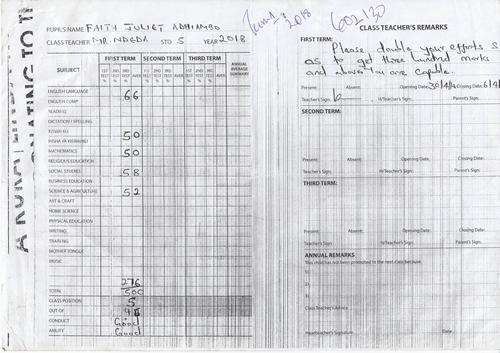 PUPIL'S NAME FAITH JULIET ADHIAMBO
CLASS TEACHER MR NDEDA STD 5 YEAR 2018
SUBJECT FIRST TERM SECOND TERM THIRD TERM ANNUAL AVERAGE SUMMARY
1ST TEST % 2ND TEST % 3RD TEST % AVER. 1ST TEST % 2ND TEST % 3RD TEST % AVER. 1ST TEST % 2ND TEST % 3RD TEST % AVER.
ENGLISH LANGUAGE 66
ENGLISH COMP
READING
DICTATION / SPELLING
KISWAHILI 50
INSHA YA KISWAHILI
MATHEMATICS 50
RELIGIOUS EDUCATION
SOCIAL STUDIES 58
BUSINESS EDUCATION
SCIENCE & AGRICULTURE 52
ART & CRAFT
HOME SCIENCE
PHYSICAL EDUCATION
WRITING
TRAINING
MOTHER TONGUE
MUSIC
276
TOTAL 500
CLASS POSITION 5
OUT OF
CONDUCT Good
ABILITY Good
Term 1 2018
602130
CLASS TEACHER'S REMARKS
FIRST TERM:
Please double your efforts s
as to get three hundred marks
and above. You are capable.
Present: Absent: Opening Date: Closing Date:
Teacher's Sign: H/Teacher's Sign: Parent's Sign:
SECOND TERM:
Present: Absent: Opening Date: Closing Date:
Teacher's Sign: H/Teacher's Sign: Parent's Sign:
THIRD TERM:
Present: Absent: Opening Date: Closing Date:
Teacher's Sign: H/Teacher's Sign: Parent's Sign:
ANNUAL REMARKS
This child has been promoted to the next class because
Class Teacher's Advice
Headteacher's Signature Date